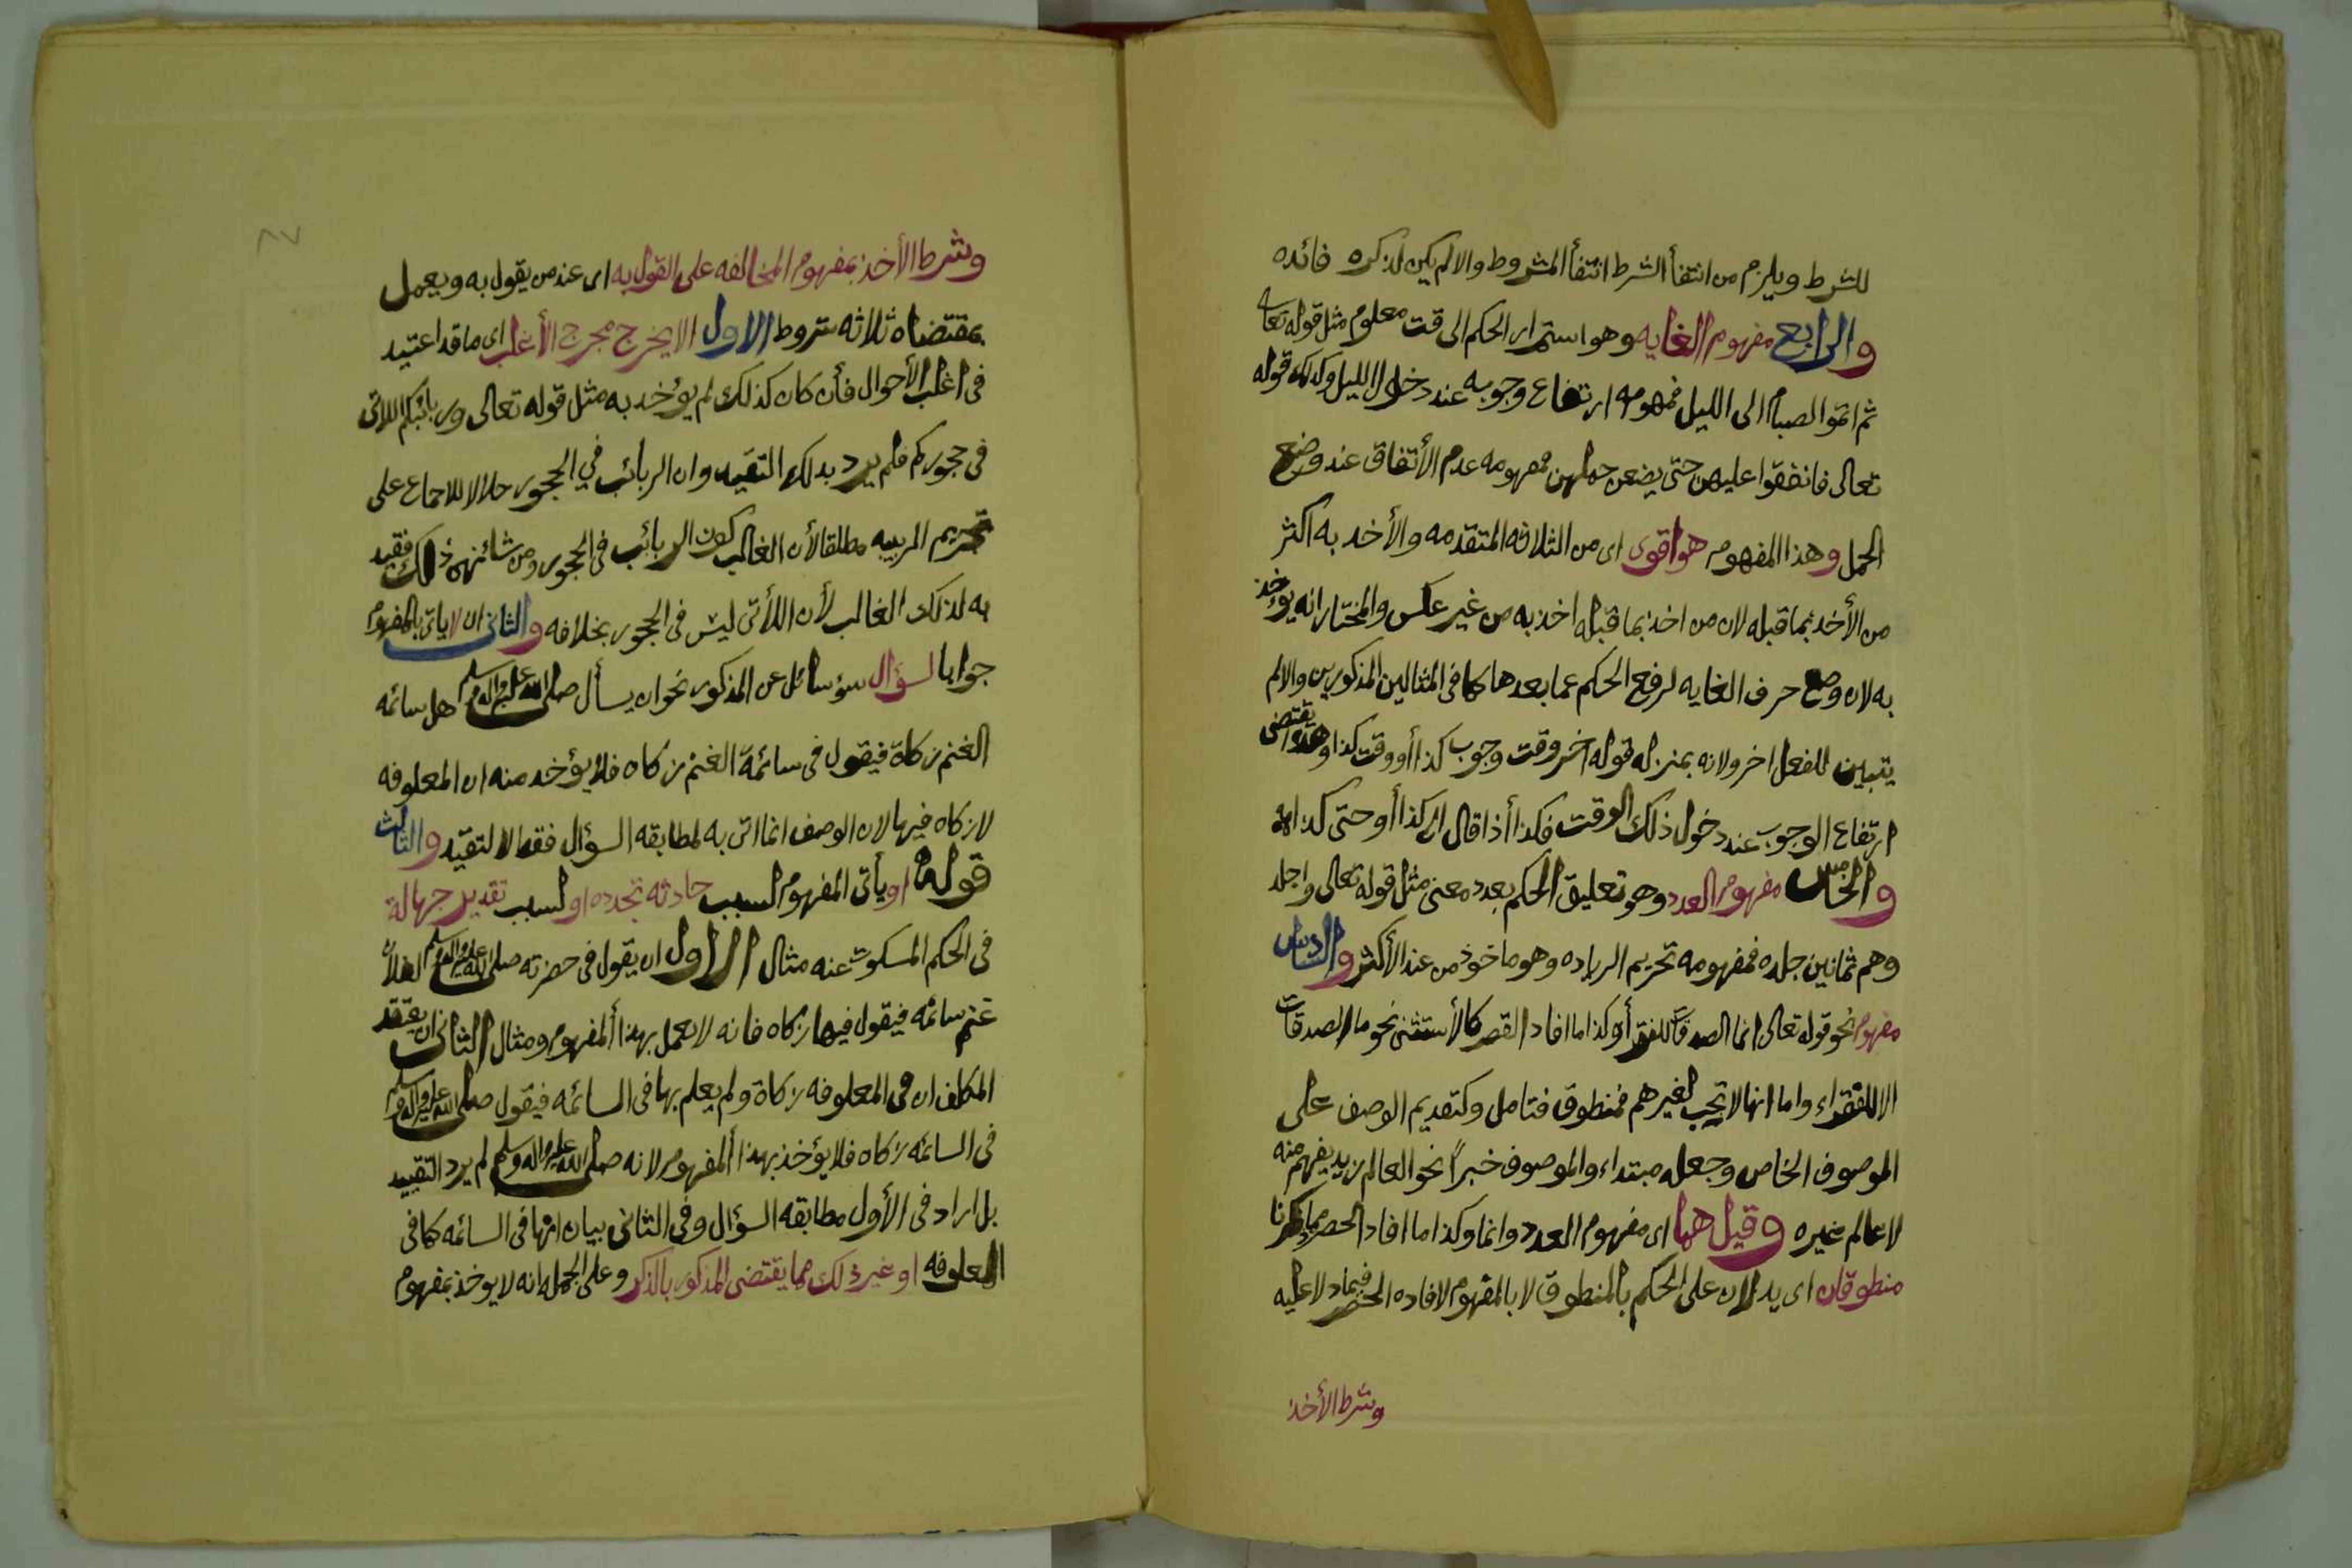 للشرط ويلزم من انتفأ الشرط انتفأ المشروط والا لم يكن لذكره فائده
والرابع مفهوم الغايه وهو استمرار الحكم الى وقت معلوم مثل قوله تعالى
ثم اتموا الصيام الى الليل فمفهومه ارتفاع وجوبه عند دخول الليل وكذلك قوله
تعالى فانفقوا عليهن حتى يضعن حملهن فمفهومه عدم الأتفاق عند وضع
الحمل وهذا المفهوم هو اقوى اى من الثلاثه المتقدمه والأخد به اكثر
من الأخذ بما قبله لان من اخذ بما قبله اخذ به من غير عكس والمختار انه يؤخذ
به لان وضع حرف الغايه لرفع الحكم عما بعدها كما فى المثالين المذكورين والا لم
يتبين للفعل اخر ولانه بمنزله قوله اخر وقت وجوب كذا أو وقت كذا وهذا يقتضى
ارتفاع الوجوب عند دخول ذلك الوقت فكذا أذا قال الى كذا أو حتى كذا
والخامس مفهوم العدد وهو تعليق الحكم بعدد معنى مثل قوله تعالى واجلد
وهم ثمانين جلده فمفهومه تحريم الزياده وهو ماخوذ من عند الأكثر والسادس
مفهوم نحو قوله تعالى انما الصدقات للفقرأ وكذا ما افاد القصر كالأستثنى نحو ما الصدقات
الا للفقراء واما انها لا تجب لغيرهم فمنطوق فتامل وكتقديم الوصف على
الموصوف الخاص وجعله مبتداء والموصوف خبراً نحو العالم زيد يفهم منه
لا عالم غيره وقيل هما اى مفهوم العدد وانما وكذا ما افاد الحصر مما ذكرنا
منطوقان اى يدلان على الحكم بالمنطوق لا بالمفهوم لافاده الحصر فيما دلا عليه
وشرط الأخذ
وشرط الأخذ بمفهوم المخالفه على القول به اى عند من يقول به ويعمل
بمقتضاه ثلاثه شروط الاول الا يخرج مخرج الأغلب اى ما قد اعتيد
فى اغلب الأحوال فأن كان كذلك لم يؤخد به مثل قوله تعالى وربائبكم اللاتى
فى حجوركم فلم يرد بدلك التقيد وان الربائب في الحجور حلالا للاجماع على
تحريم الربيبه مطلقا لأن الغالب كون الربائب فى الحجور ومن شانهن ذلك فقيد
به لذلك الغالب لأن اللأتى ليس فى الحجور بخلافه والثانى ان لا ياتى بالمفهوم
جوابا لسؤال سؤ سائل عن المذكور نحو ان يسأل صلى الله عليه واله وسلم هل سائمه
الغنم زكاة فيقول فى سائمة الغنم زكاه فلا يؤخد منه ان المعلوفه
لا زكاه فيها لان الوصف انما اتى به لمطابقه السؤال فقط لا لتقيد والثالث
قوله او يأتى المفهوم لسبب حادثه تجدده او لسبب تقدير جهالة
فى الحكم المسكوت عنه مثال الاول ان يقول فى حضرته صلى الله عليه واله وسلم لفلان
غنم سائمه فيقول فيها زكاه فانه لا يعمل بهذا ألمفهوم ومثال الثانى ان يعتقد
المكلف ان فى المعلوفه زكاة ولم يعلم بها فى السائمه فيقول صلى الله عليه واله وسلم
فى السائمه زكاه فلا يؤخذ بهذا ألمفهوم لانه صلى الله عليه واله وسلم لم يرد التقييد
بل اراد فى الأول مطابقه السؤال وفى الثانى بيان انها فى السائمه كما فى
المعلوفه او غير ذلك مما يقتضى المذكور بالذكر وعلى الجمله انه لا يوخذ بمفهوم